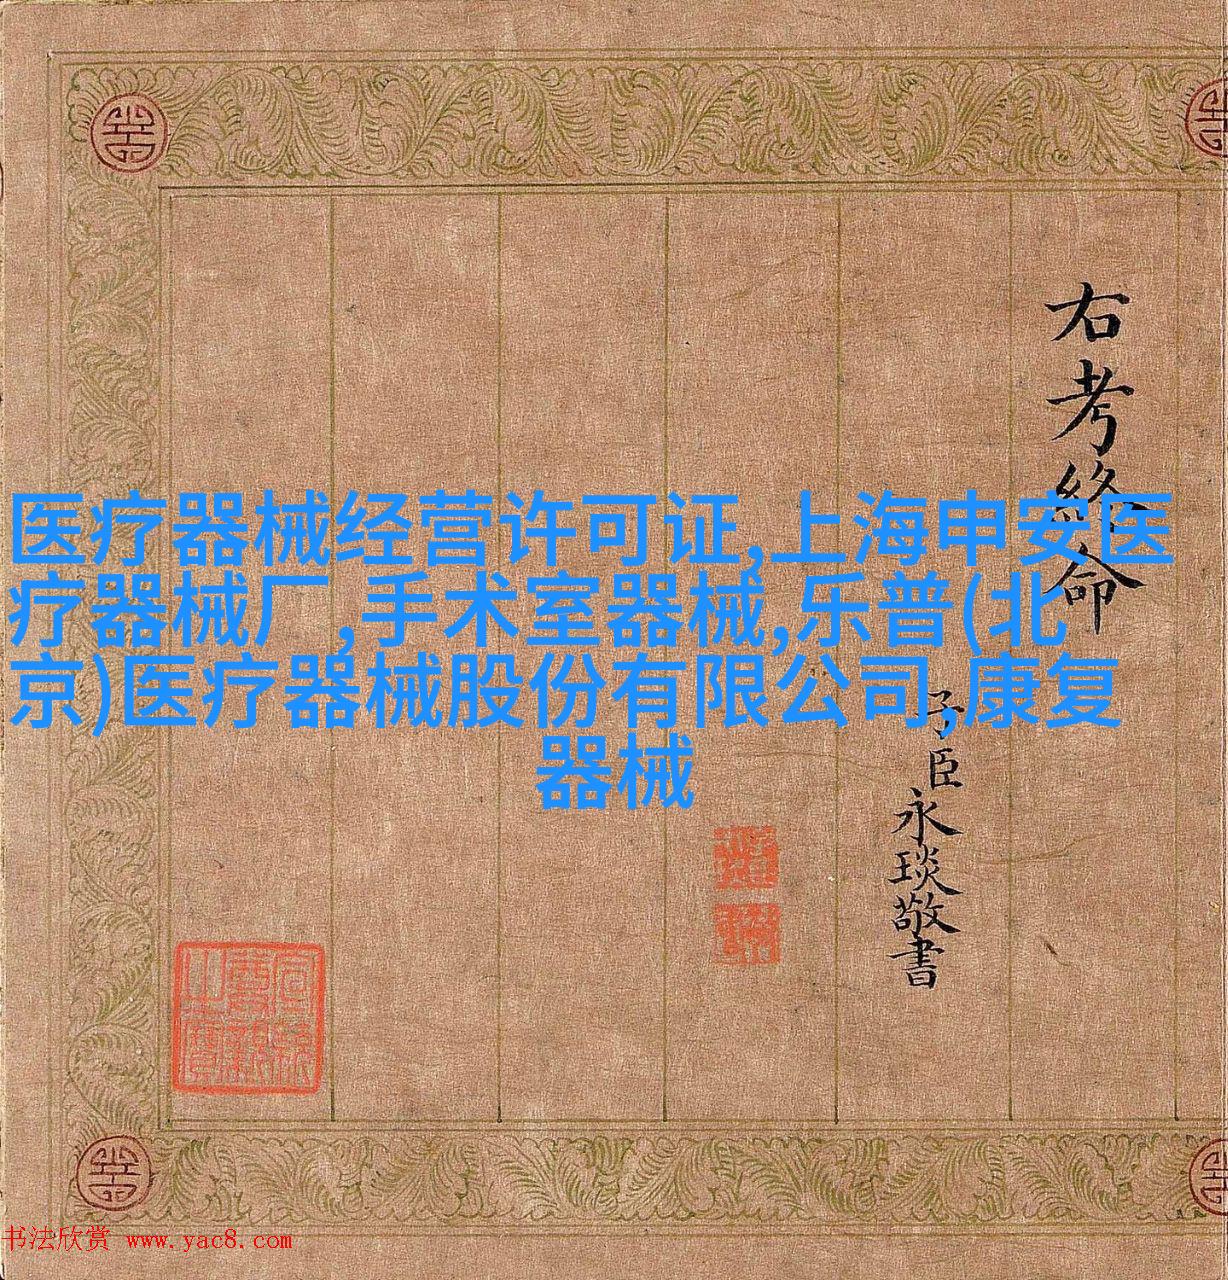 医疗器械经营许可证,上海申安医
疗器械厂,手术室器械,乐普(北
京)医疗器械股份有限公司,康复
器械
右考終命
子臣永琰敬書
书法欣赏 www.yac8.com